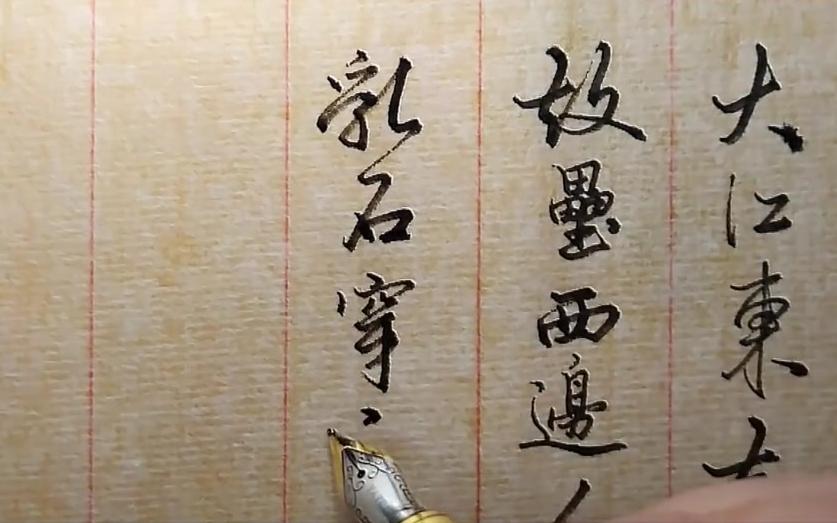 大江東去
故壘西邊人
亂石穿